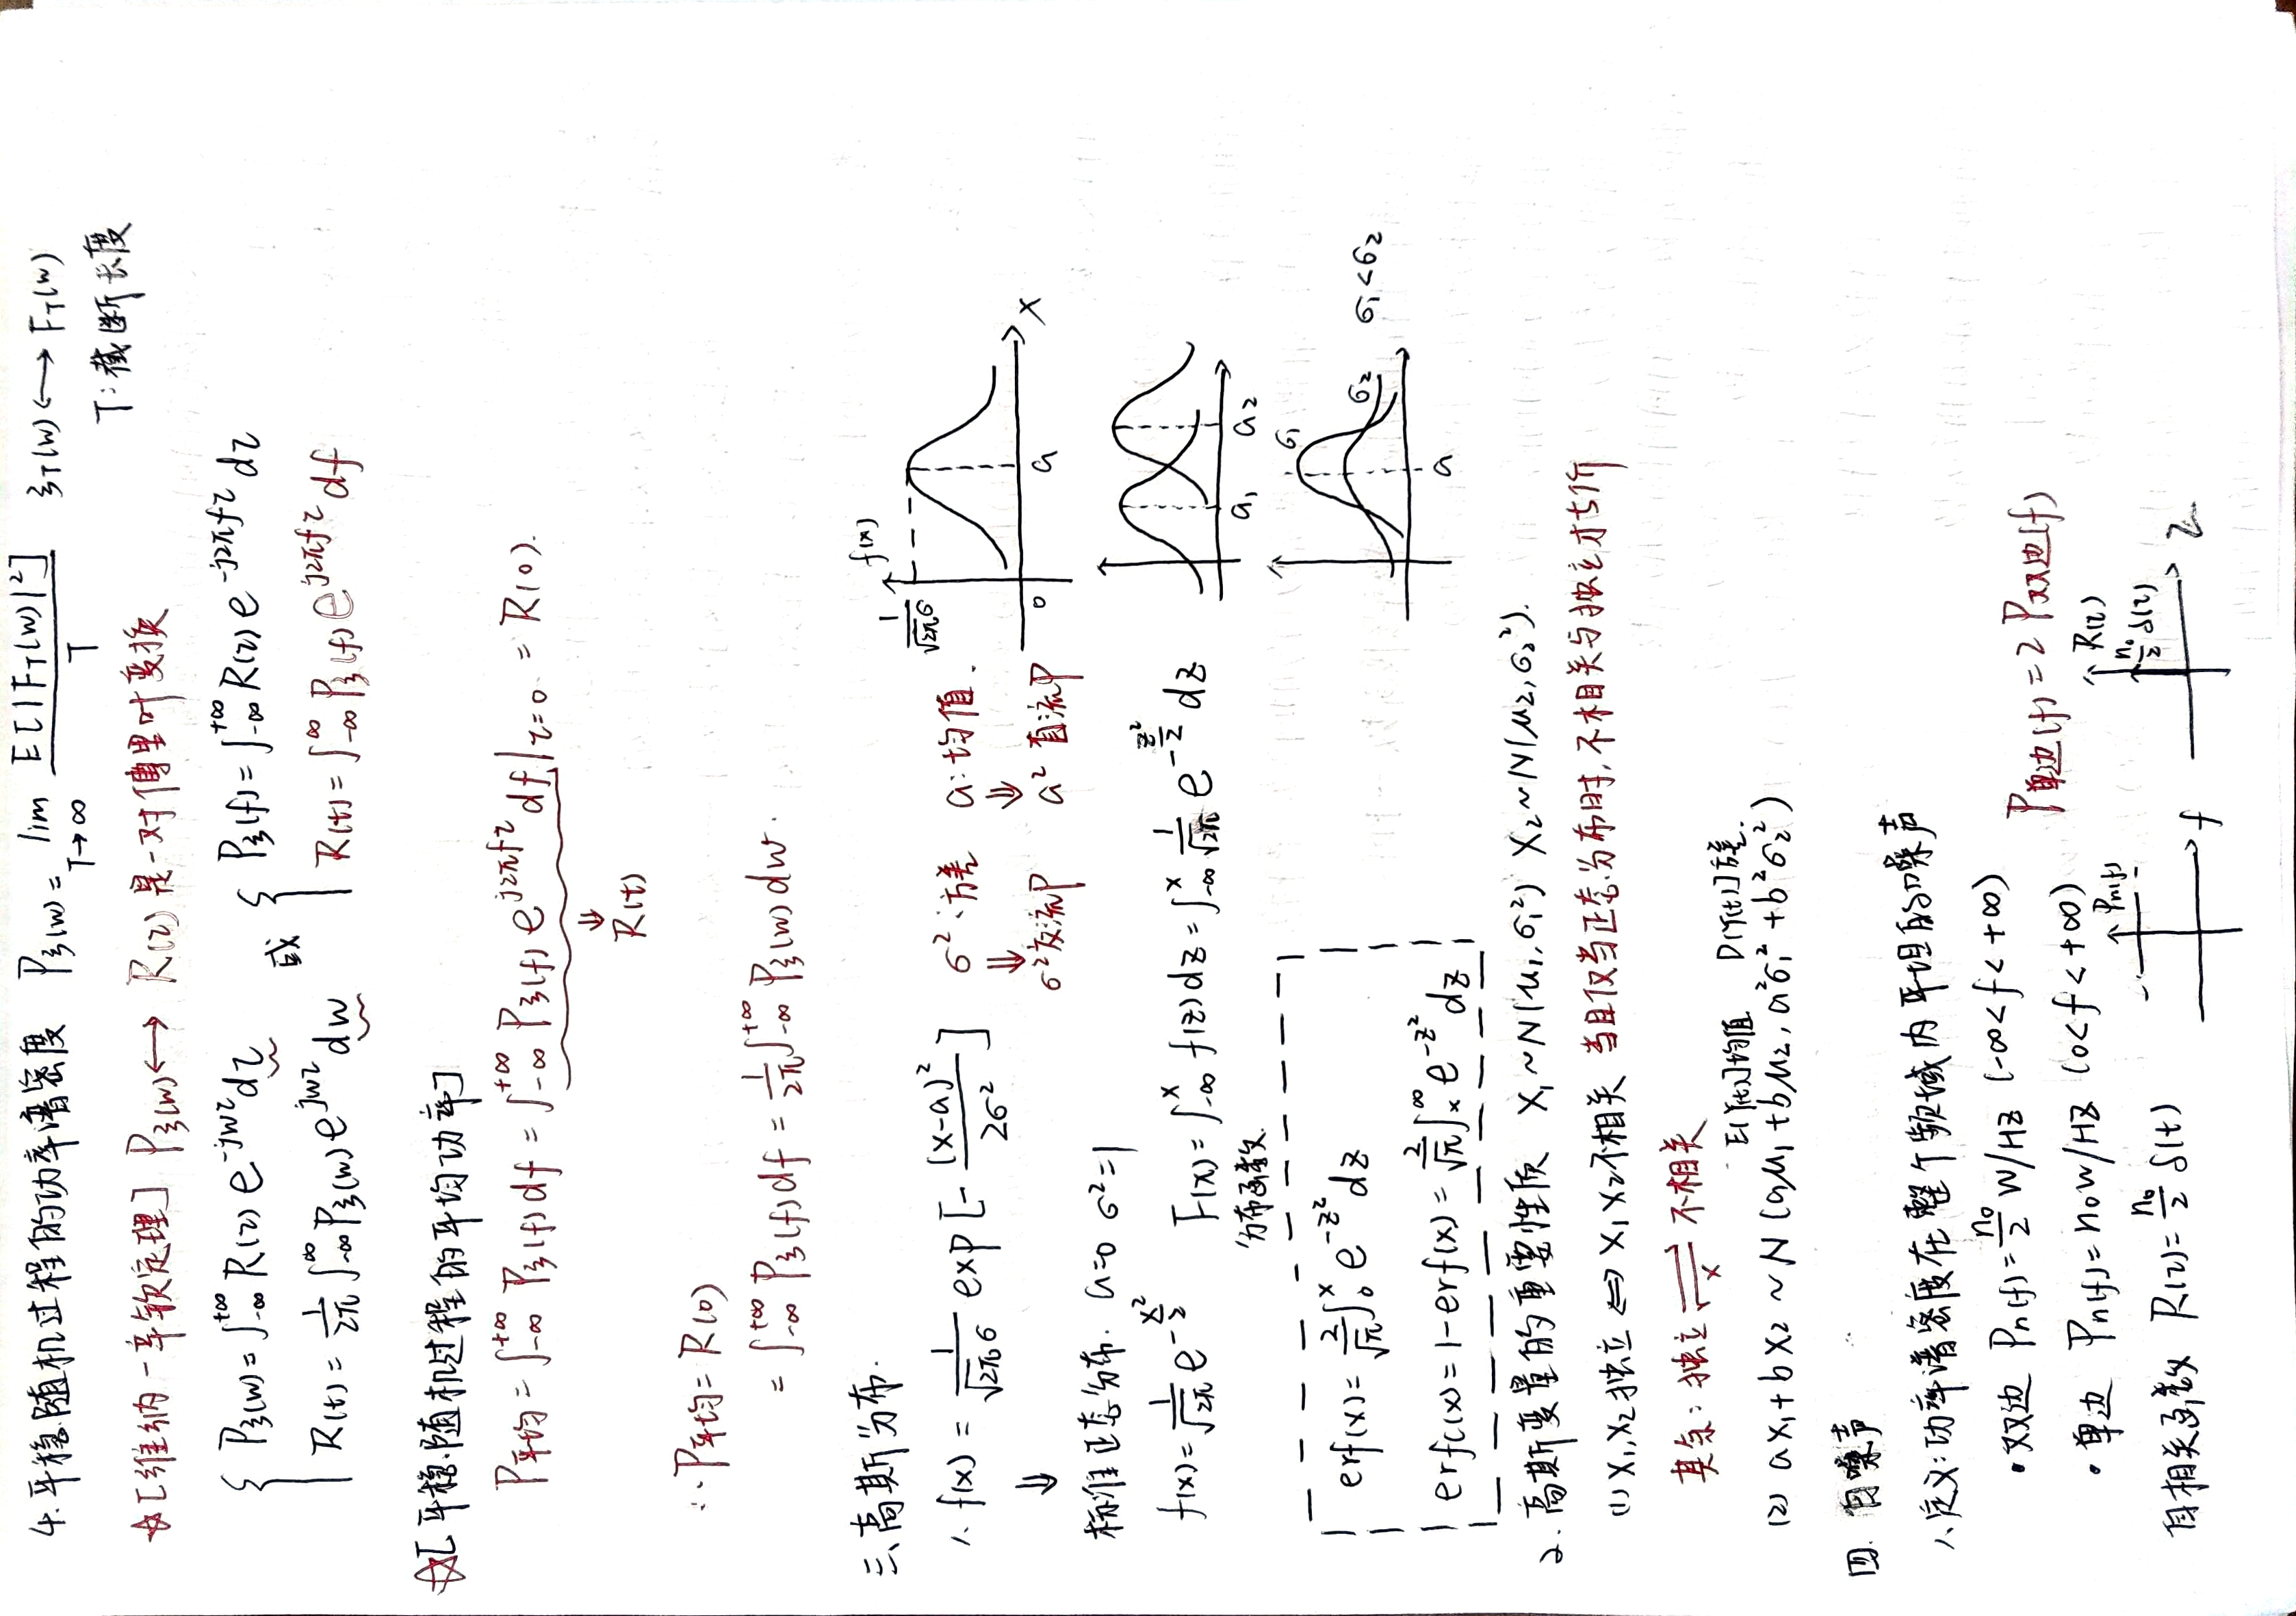 4. 平稳随机过程的功率谱密度 Pξ(w) = lim T→∞ E[|F_T(w)|²] / T ξ_T(w) ←→ F_T(w)
T: 截断长度
☆[维纳-辛钦定理] Pξ(w) ←→ R(τ) 是一对傅里叶变换
{ Pξ(w) = ∫_{-∞}^{+∞} R(τ) e^{-jwτ} dτ 或 { Pξ(f) = ∫_{-∞}^{+∞} R(τ) e^{-j2πfτ} dτ
R(t) = 1/2π ∫_{-∞}^{∞} Pξ(w) e^{jwτ} dw R(t) = ∫_{-∞}^{∞} Pξ(f) e^{j2πfτ} df
☆[平稳随机过程的平均功率]
P平均 = ∫_{-∞}^{+∞} Pξ(f) df = ∫_{-∞}^{+∞} Pξ(f) e^{j2πfτ} df |τ=0 = R(0).
⇓
R(t)
∴ P平均 = R(0)
= ∫_{-∞}^{+∞} Pξ(f) df = 1/2π ∫_{-∞}^{+∞} Pξ(w) dw.
三、高斯分布.
1. f(x) = 1/(√2π σ) exp[-(x-a)²/2σ²] σ²: 方差 a: 均值.
⇓ ⇓ ⇓
σ² 交流P a² 直流P
f(x)
1/(√2π σ)
0 a x
标准正态分布. a=0 σ²=1
f(x) = 1/√2π e^{-x²/2} F(x) = ∫_{-∞}^{x} f(z) dz = ∫_{-∞}^{x} 1/√2π e^{-z²/2} dz
分布函数.
a₁ a₂
erf(x) = 2/√π ∫_0^x e^{-z²} dz
erfc(x) = 1-erf(x) = 2/√π ∫_x^∞ e^{-z²} dz
σ₁
σ₂ σ₁<σ₂
a
2. 高斯变量的重要性质 X₁~N(μ₁,σ₁²) X₂~N(μ₂,σ₂²).
(1) X₁,X₂独立 ⇔ X₁ X₂不相关 当且仅当正态分布时, 不相关与独立才等价
其余: 独立 ⇌ 不相关
x
E[Y(t)]均值 D[Y(t)]方差.
(2) aX₁+bX₂ ~ N(aμ₁+bμ₂, a²σ₁²+b²σ₂²)
四. 白噪声
1. 定义: 功率谱密度在整个频域内平坦的噪声
• 双边 Pn(f) = n₀/2 W/HZ (-∞<f<+∞)
P单边(f) = 2 P双边(f)
• 单边 Pn(f) = n₀ W/HZ (0<f<+∞)
自相关函数 R(τ) = n₀/2 δ(t)
Pn(f)
f
R(τ)
n₀/2 δ(τ)
τ